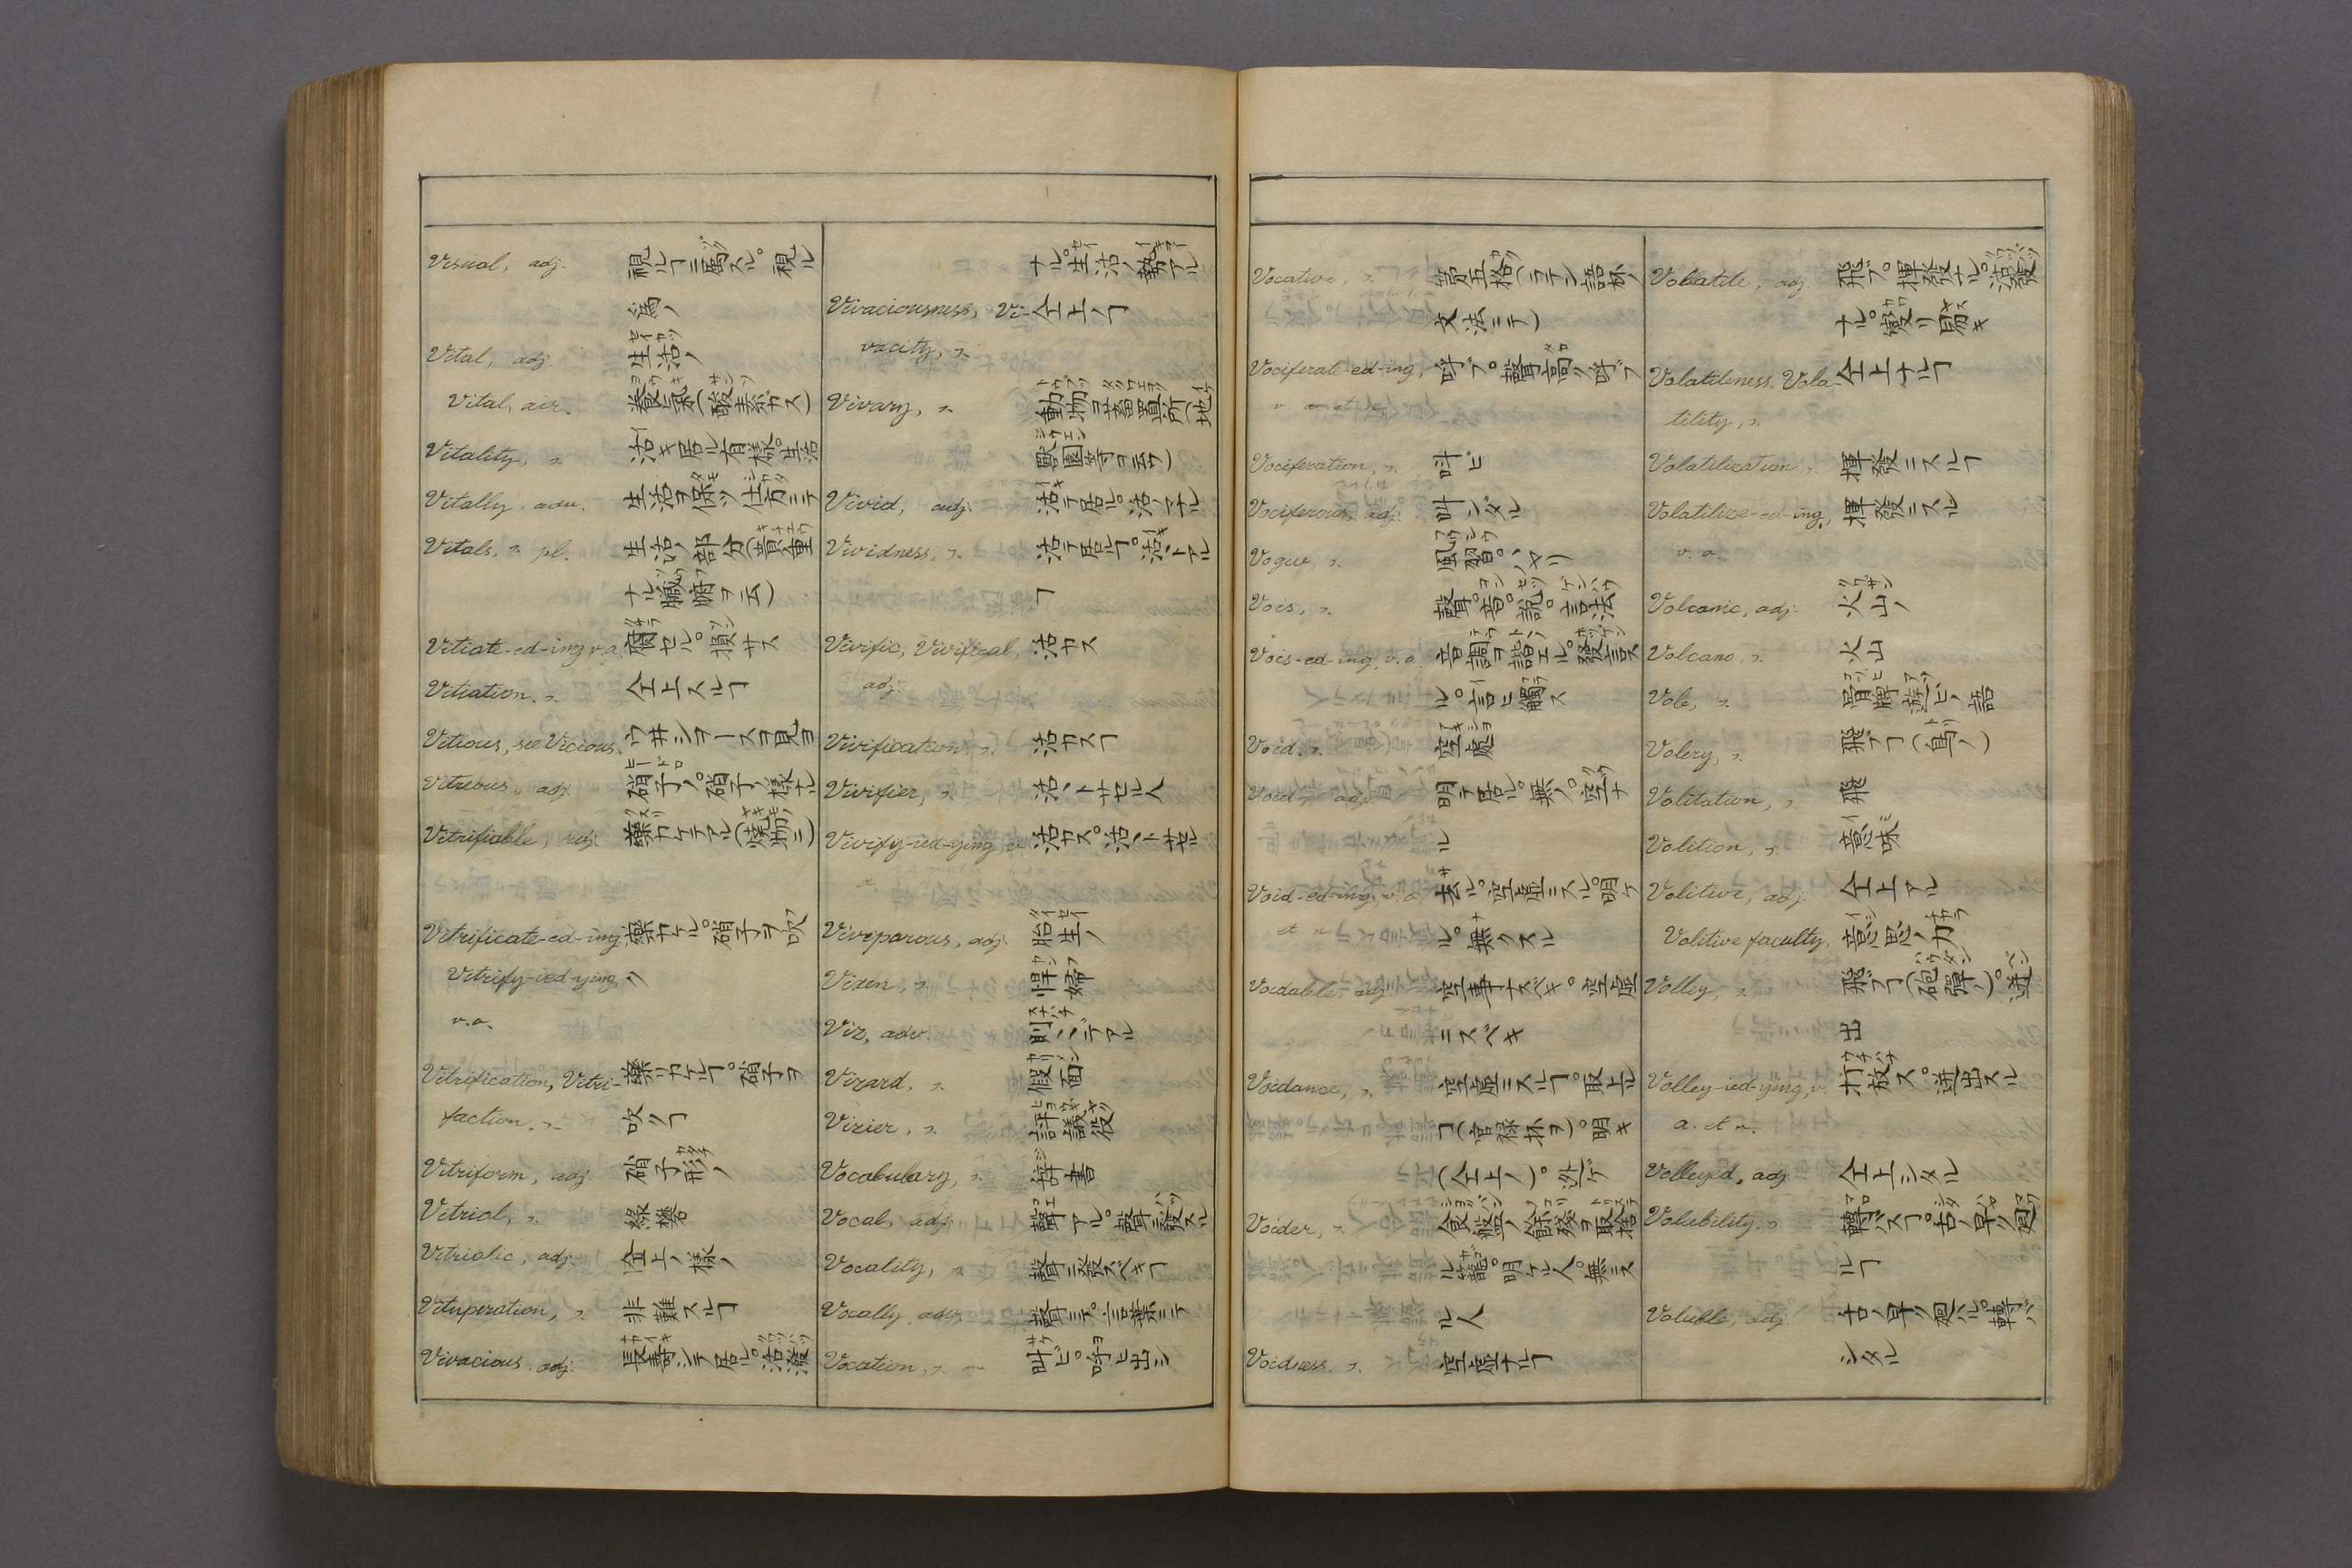 Visual, adj. 視ルヿニ属スル。視ル
為ノ
Vital, adj. 生活ノ
Vital air. 養氣(酸素ガス)
Vitality, n. 活キ居ル有様。生活
Vitally. adv. 生活ヲ保ツ仕方ニテ
Vitals. n. pl. 生活ノ部分(貴重
ナル臓腑ヲ云)
Vitiate-ed-ing v.a. 腐セル。損サス
Vitiation. n. 仝上スルヿ
Vitious, see Vicious. ウ井シヲースヲ見ヨ
Vitreous, adj. 硝子ノ。硝子ノ様ナル
Vitrifiable, adj. 藥カケテアル(焼物ニ)
Vitrificate-ed-ing 藥カケル。硝子ヲ吹ク
Vitrify-ied-ying,
v.a.
Vitrification, Vitri- 藥カケルヿ。硝子ヲ
faction. n. 吹クヿ
Vitriform, adj. 硝子形ノ
Vitriol, n. 緑礬
Vitriolic, adj. 仝上ノ様ノ
Vituperation, n. 非難スルヿ
Vivacious. adj. 長壽シテ居ル。活潑
ナル。生活ノ勢アル
Vivaciousness, Vi- 仝上ノヿ
vacity, n.
Vivary, n. 動物ヲ蓄置所(地
獸園等ヲ云フ)
Vivid, adj. 活テ居ル。活ノマル
Vividness, n. 活テ居ルヿ。活ハトアル
ヿ
Vivific, Vivifical, 活カス
adj.
Vivification, n. 活カスヿ
Vivifier, n. 活ハトサセル人
Vivify-ied-ying, v. 活カス。活ハトサセル
a.
Viviparous, adj. 胎生ノ
Vixen, n. 悍婦
Viz, adv. 則ハデアル
Vizard, n. 假面
Vizier, n. 評議役
Vocabulary, n. 辞書
Vocal, adj. 聲アル。聲ニ發スル
Vocality, n. 聲ニ發スベキヿ
Vocally. adv. 聲ニテ。言葉ニテ
Vocation, n. 叫ビ。呼ヒ出シ
Vocative, n. 第五格(ラテン語杯ノ
文法ニテ)
Vociferat-ed-ing, 呼ブ。聲高ク呼ブ
v. a. et n.
Vociferation, n. 叫ビ
Vociferous, adj. 叫ンダル
Vogue, n. 風習。ハヤリ
Vois, n. 聲。音。説。言法
Vois-ed-ing, v.a. 音調ヲ諧エル。發言ス
ル。言ヒ觸ス
Void. n. 空處
Void, adj. 明テ居ル。無ノ。空ナ
ル
Void-ed-ing, v.a. 去ル。空虚ニスル。明ケ
et n. ル。無クスル
Voidable, adj. 空事ナスベキ。空虚
ニスベキ
Voidance, n. 空虚ニスルヿ。取上ル
ヿ(官禄杯ヲ)。明キ
(仝上ノ)。逃ゲ
Voider, n. 食盤ノ餘殘ヲ取捨
ル籠。明ケル人。無ニス
ル人
Voidness. n. 空虚ナルヿ
Volatile, adj. 飛ブ。揮發ナル。活發
ナル。變リ易キ
Volatileness, Vola- 仝上ナルヿ
tility, n.
Volatilization n. 揮發ニスルヿ
Volatilize-ed-ing, 揮發ニスル
v. a.
Volcanic, adj. 火山ノ
Volcano, n. 火山
Vole, n. 骨牌遊ビノ語
Volery, n. 飛ブヿ(鳥ノ)
Volitation, n. 飛
Volition, n. 意味
Volitive, adj. 仝上アル
Volitive faculty, 意思ノ力
Volley, n. 飛ブヿ(砲彈ノ)。迸
出
Volley-ied-ying, v. 打放ス。迸出スル
a. et n.
Volleyed, adj. 仝上シタル
Volubility. n. 轉バスヿ。舌ノ早ク廻
ルヿ
Voluble, adj. 舌ノ早ク廻ハル。轉バ
シタル